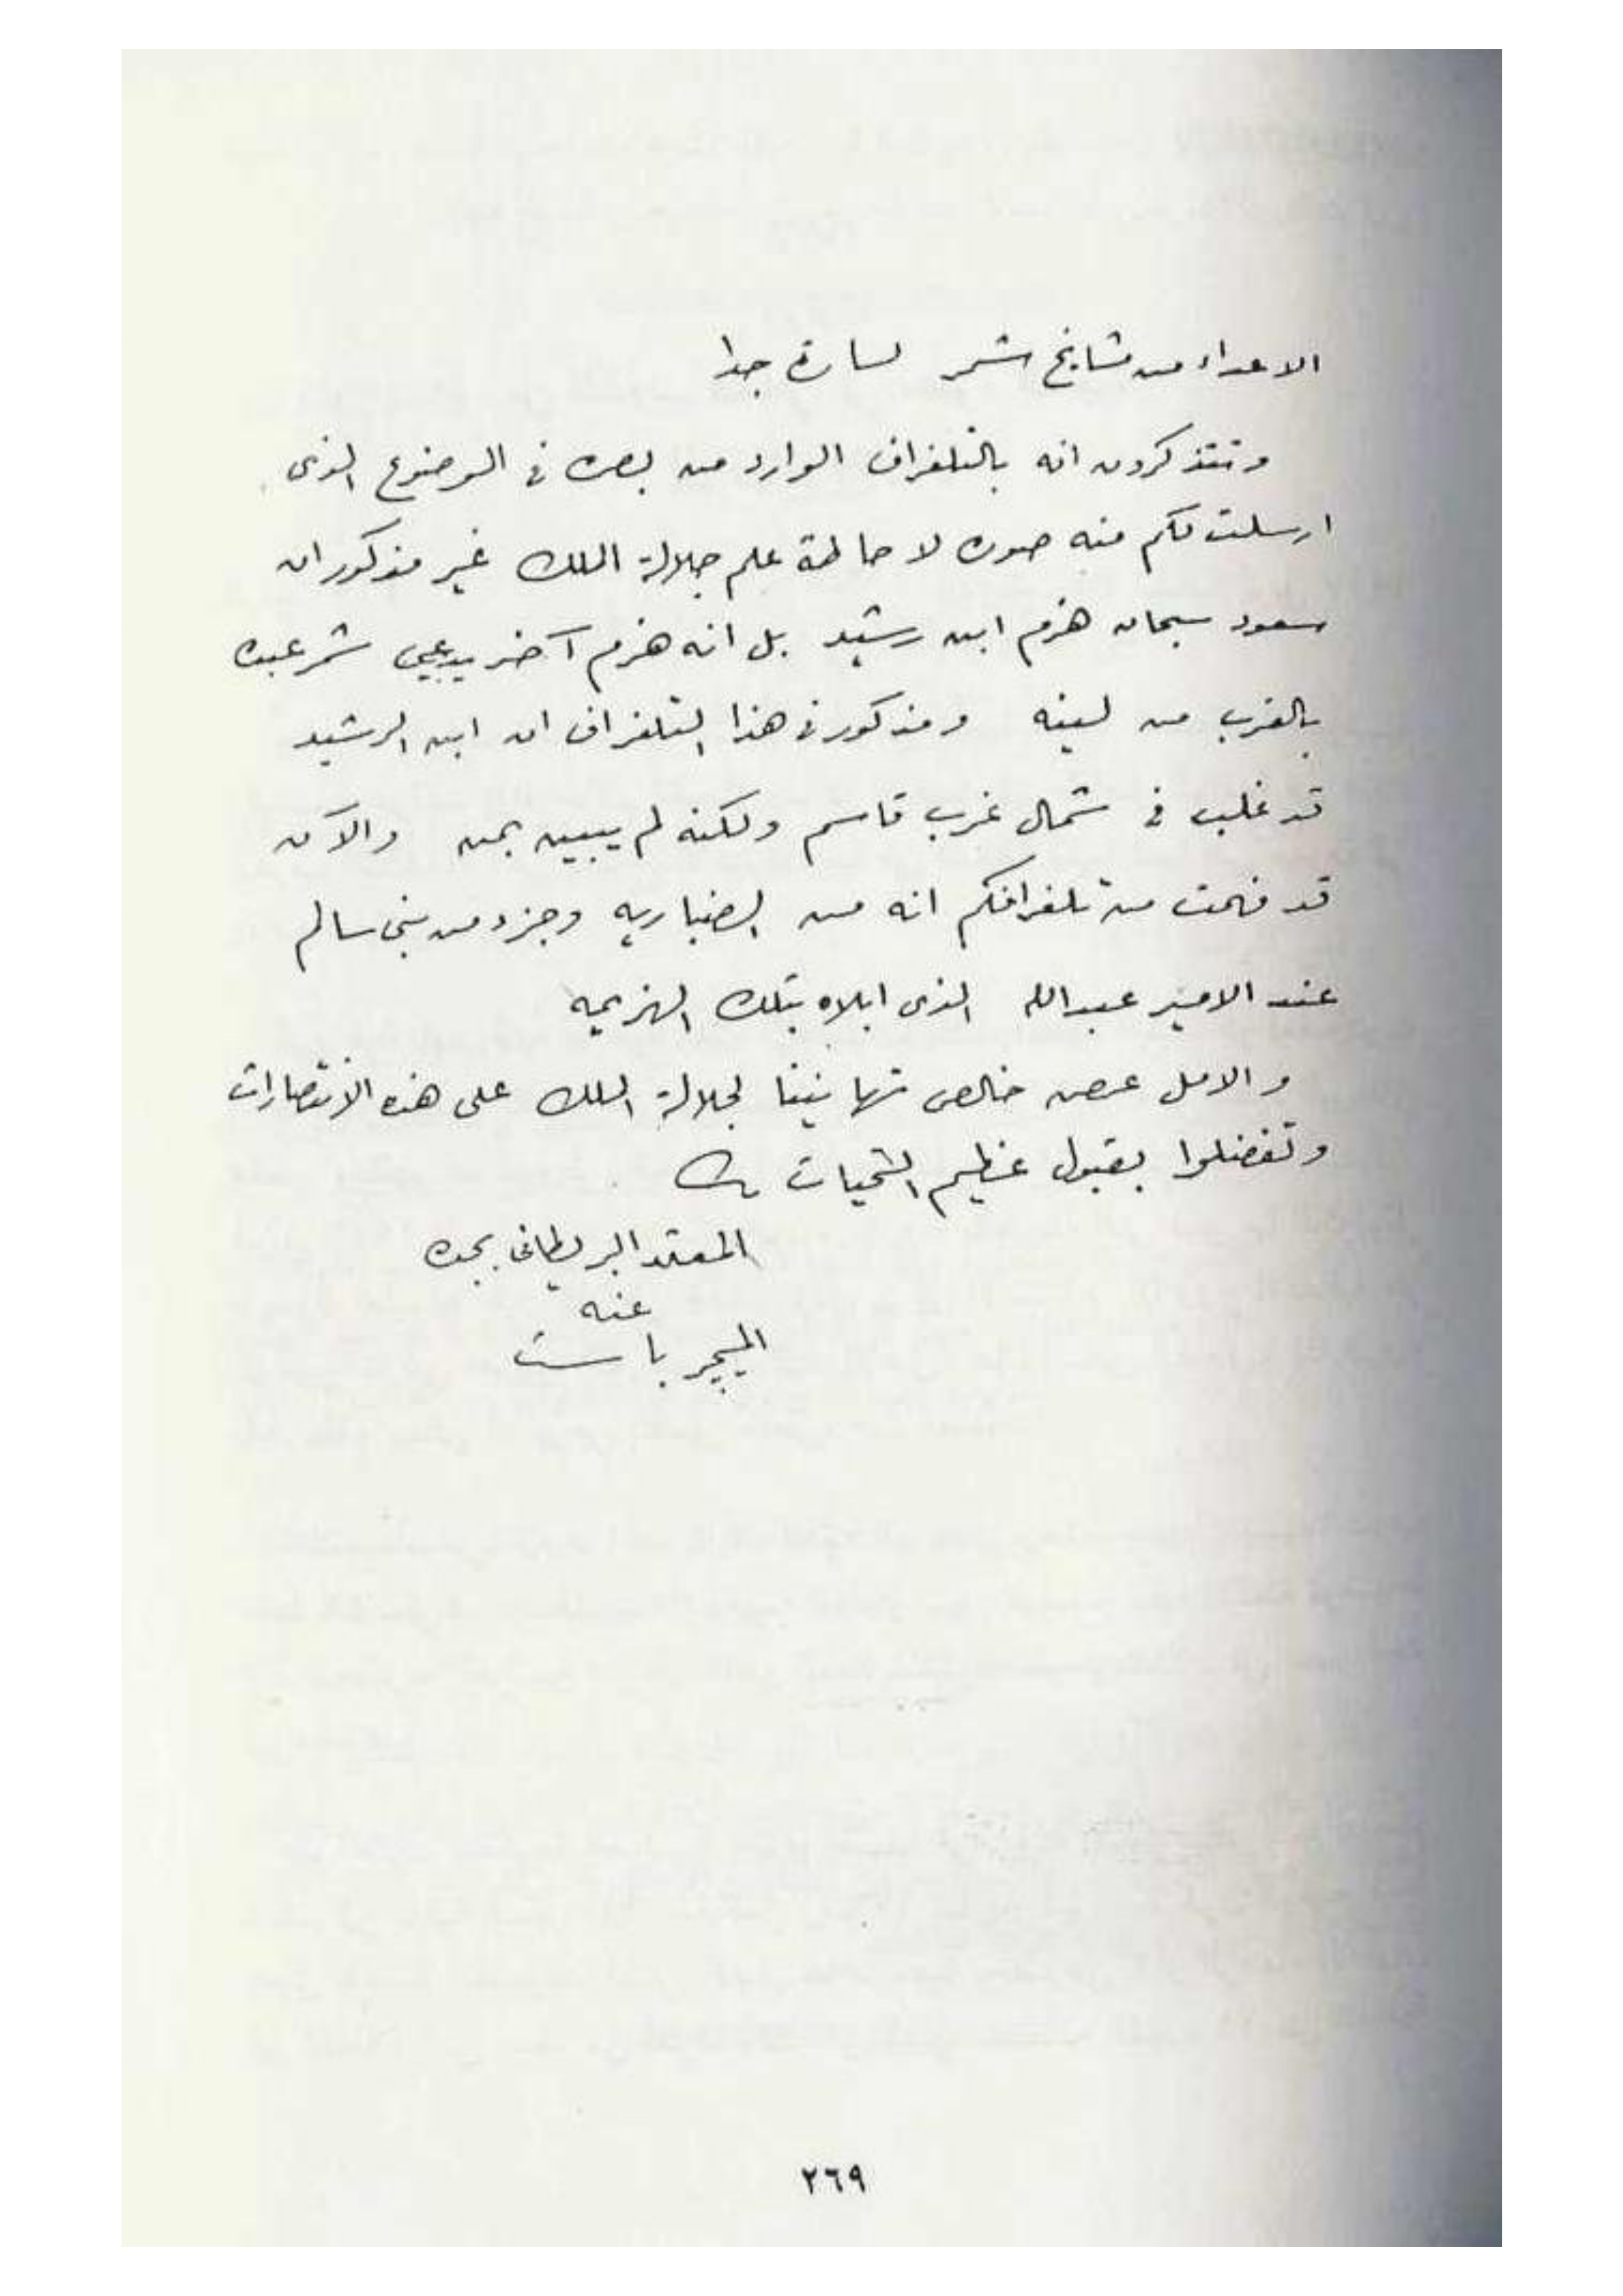 الاعداء من مشايخ شمر لسارة جدا
وتتذكرون انه بالتلغراف الوارد من بصره في الموضوع الذى
ارسلت لكم منه صوره لاحاطة علم جلالة الملك غير مذكور ان
سعود سبحان هزم ابن رشيد بل انه هزم آخر يدعى شمر عبده
بالقرب من لينه ومذكور في هذا التلغراف ان ابن الرشيد
قد غلب في شمال غرب قاسم ولكنه لم يبين بمن والآن
قد فهمت من تلغرافكم انه من الضباريه وجزء من بنى سالم
عند الامير عبدالله الذى ابلاه بتلك الهزيمه
والامل عرض خالص تهانينا لجلالة الملك على هذه الانتصارات
وتفضلوا بقبول عظيم التحيات
المعتمد البريطانى بجده
عنه
الميجر باست
٢٦٩